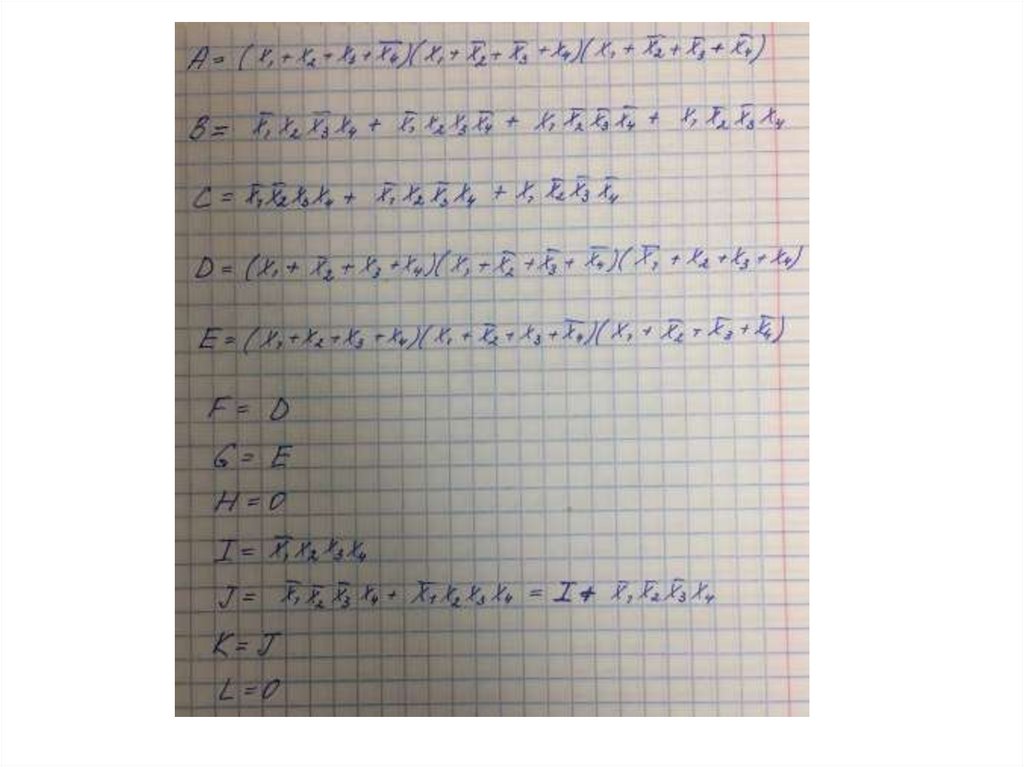 A = (x₁ + x₂ + x₃ + x̄₄)(x₁ + x̄₂ + x̄₃ + x₄)(x₁ + x̄₂ + x̄₃ + x̄₄)
B = x̄₁ x₂ x̄₃ x₄ + x̄₁ x₂ x₃ x̄₄ + x₁ x̄₂ x̄₃ x̄₄ + x₁ x̄₂ x̄₃ x₄
C = x̄₁ x̄₂ x₃ x₄ + x̄₁ x₂ x̄₃ x₄ + x₁ x̄₂ x̄₃ x̄₄
D = (x₁ + x̄₂ + x₃ + x₄)(x₁ + x̄₂ + x̄₃ + x̄₄)(x̄₁ + x₂ + x₃ + x₄)
E = (x₁ + x₂ + x₃ + x₄)(x₁ + x̄₂ + x₃ + x̄₄)(x₁ + x̄₂ + x̄₃ + x̄₄)
F = D
G = E
H = 0
I = x̄₁ x₂ x₃ x₄
J = x̄₁ x̄₂ x̄₃ x₄ + x̄₁ x₂ x₃ x₄ = I + x̄₁ x̄₂ x̄₃ x₄
K = J
L = 0